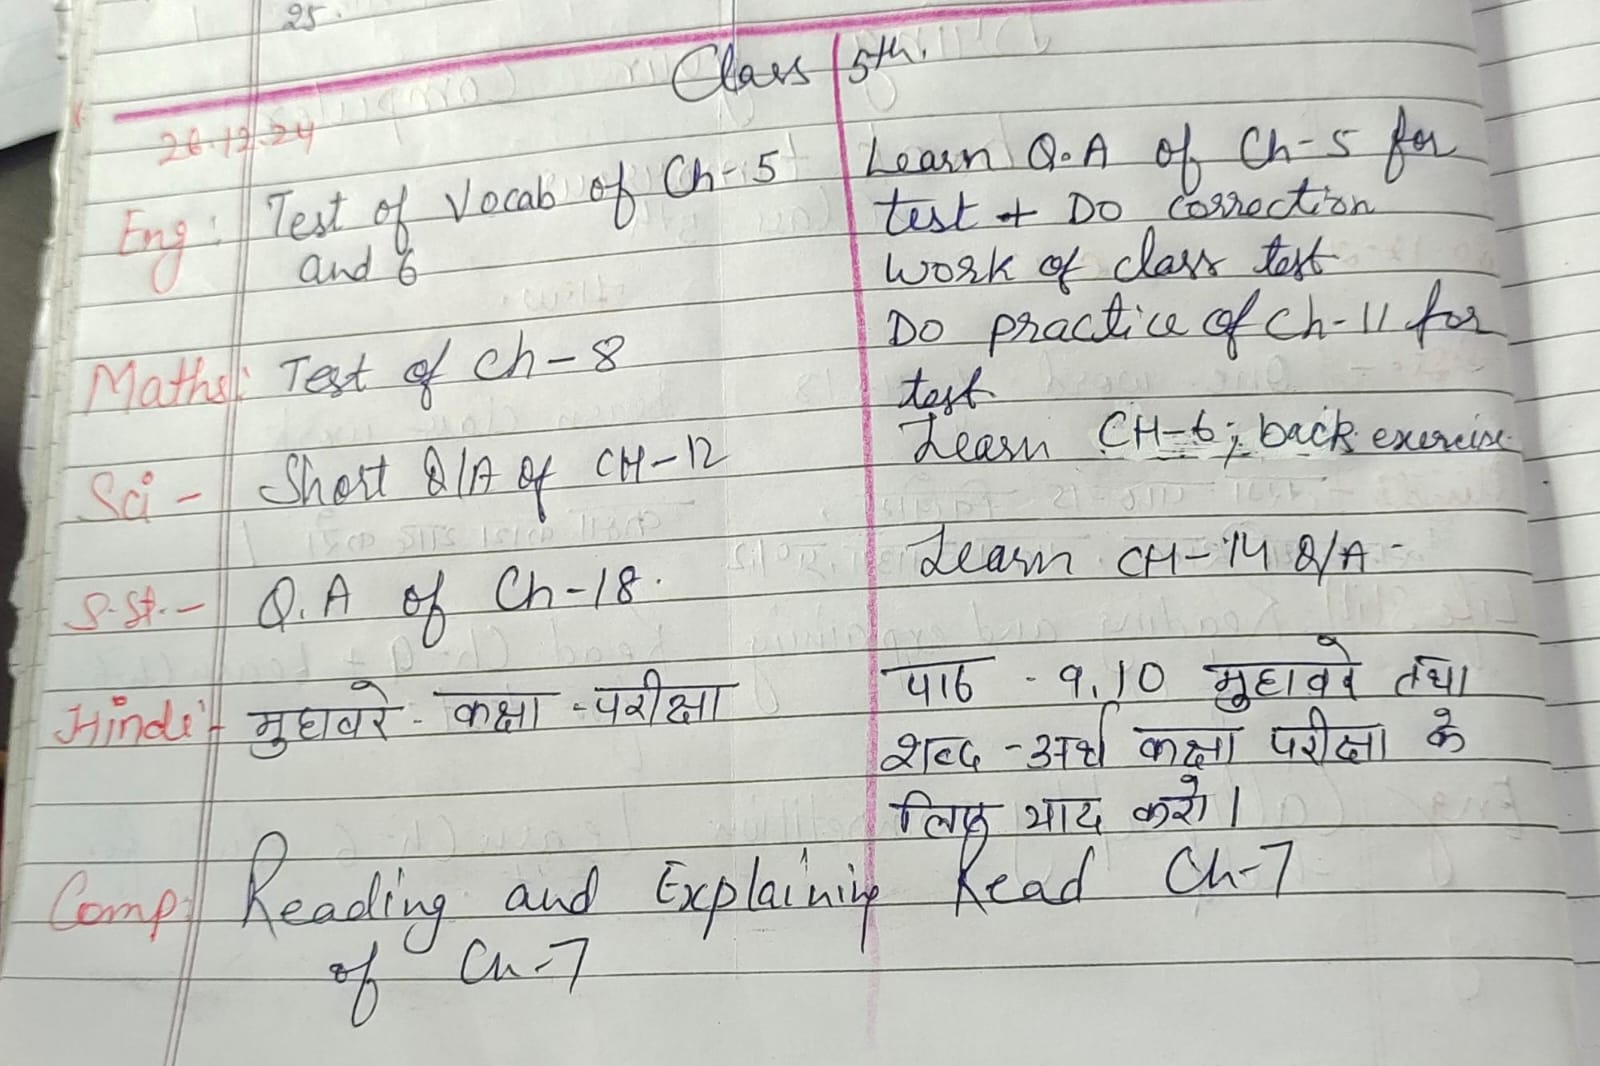 25.
Class 5th.
26.12.24
Eng: Test of Vocab of Ch-5
and 6
Learn Q.A of Ch-5 for
test + Do correction
work of class test
Maths: Test of ch-8
Do practice of Ch-11 for
test
Sci - Short Q/A of CH-12
Learn CH-6; back exercise
S.St.- Q.A of Ch-18.
Learn CH-14 Q/A-
Hindi:- मुहावरे - कक्षा - परीक्षा
पाठ - 9,10 मुहावरे तथा
शब्द - अर्थ कक्षा परीक्षा के
लिए याद करो।
Comp: Reading and Explaining
of Ch-7
Read Ch-7